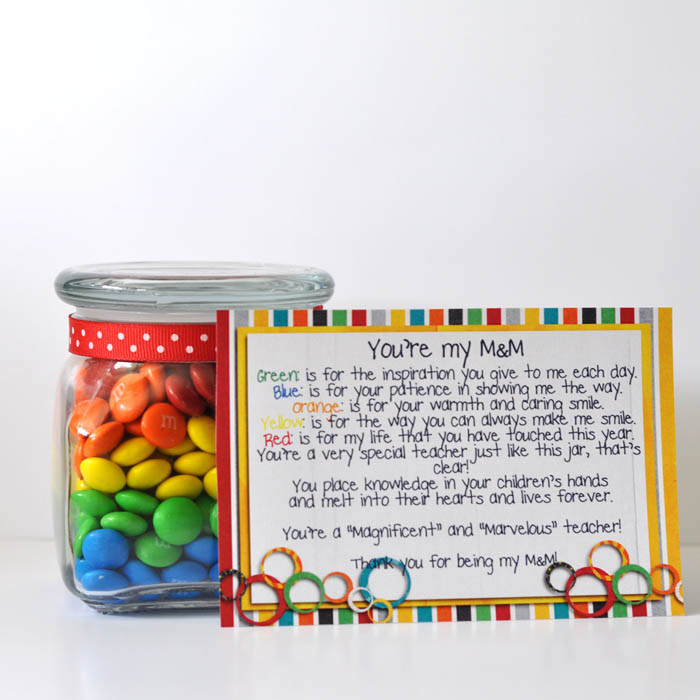 You're my M&M
Green: is for the inspiration you give to me each day.
Blue: is for your patience in showing me the way.
Orange: is for your warmth and caring smile.
Yellow: is for the way you can always make me smile.
Red: is for my life that you have touched this year.
You're a very special teacher just like this jar, that's
clear!
You place knowledge in your children's hands
and melt into their hearts and lives forever.
You're a "Magnificent" and "Marvelous" teacher!
Thank you for being my M&M!
m
m
m